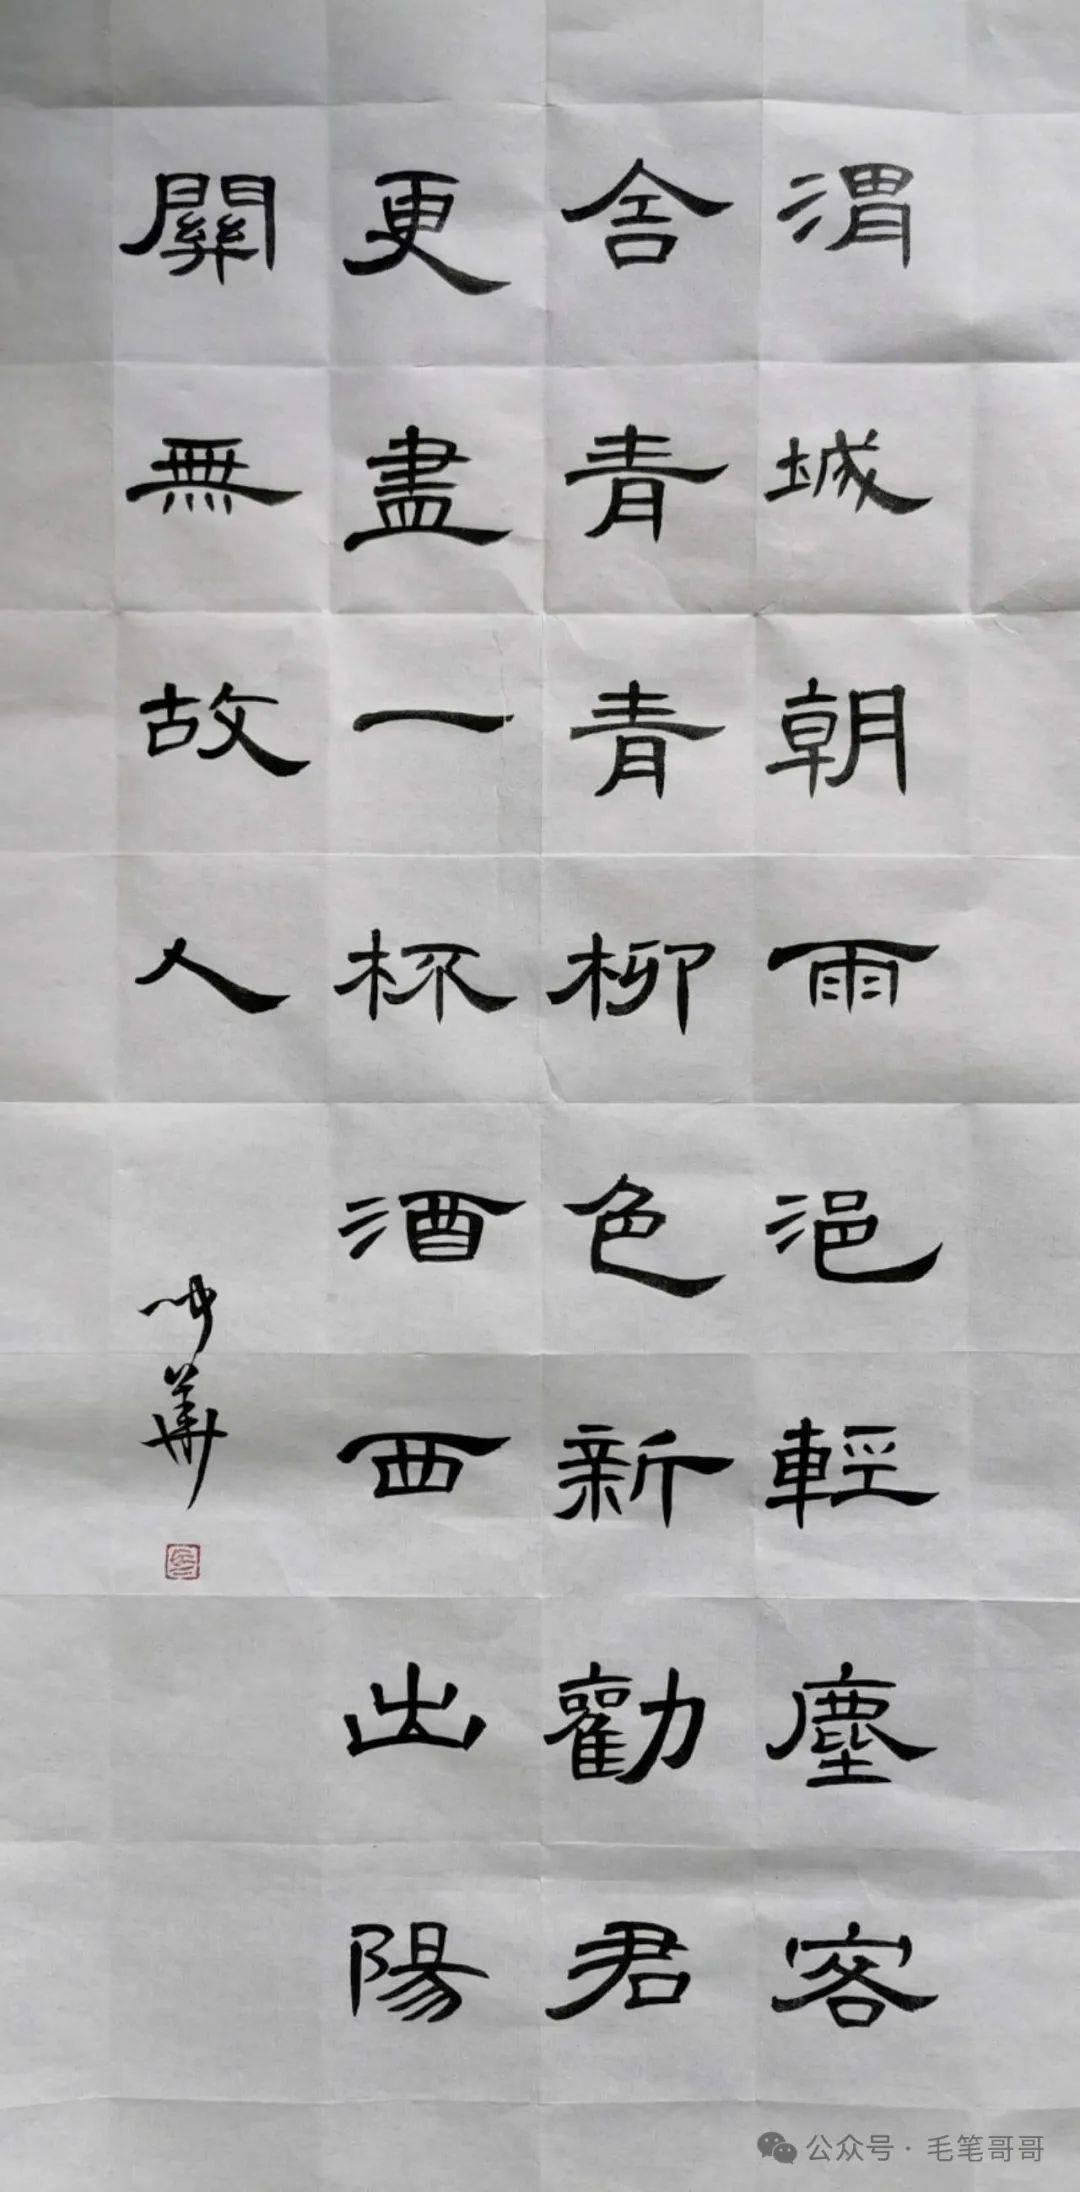 渭城朝雨浥輕塵客
舍青青柳色新勸君
更盡一杯酒西出陽
關無故人
華
公众号 · 毛笔哥哥